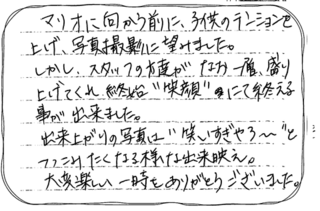 マリオに向かう前に、子供のテンションを
上げ、写真撮影に望みました。
しかし、スタッフの方達が なお一層、盛り
上げてくれ 終始 "笑顔" にて終える
事が 出来ました。
出来上がりの写真は "笑いすぎやろ〜" と
つっこみたくなる様な出来映え。
大変楽しい一時を ありがとうございました。